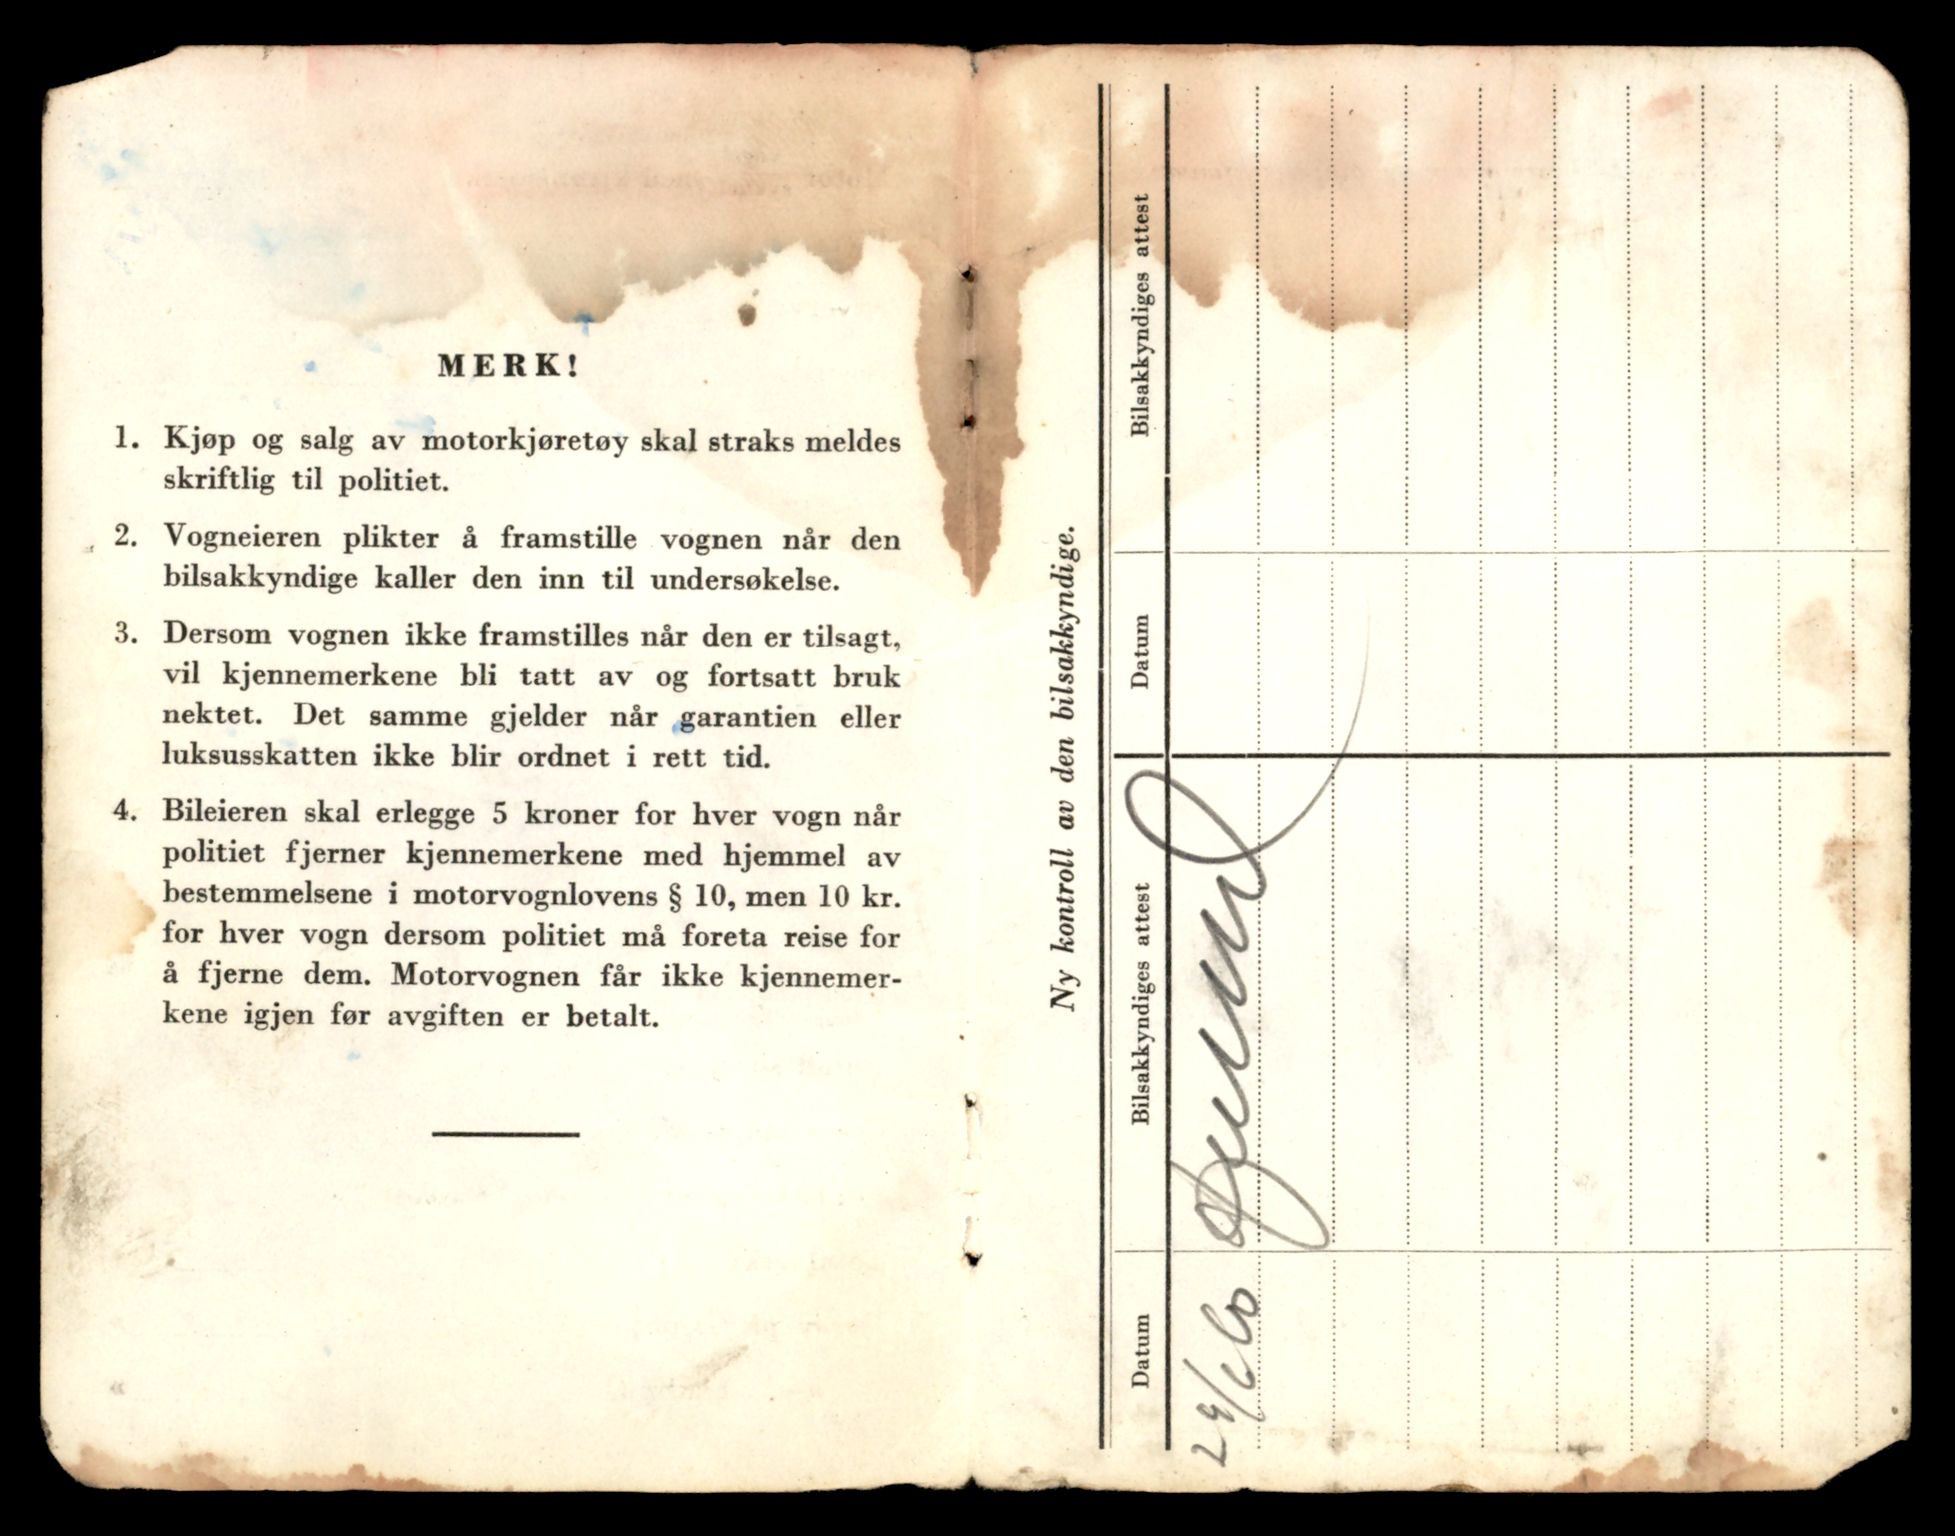 MERK!
1. Kjøp og salg av motorkjøretøy skal straks meldes
skriftlig til politiet.
2. Vogneieren plikter å framstille vognen når den
bilsakkyndige kaller den inn til undersøkelse.
3. Dersom vognen ikke framstilles når den er tilsagt,
vil kjennemerkene bli tatt av og fortsatt bruk
nektet. Det samme gjelder når garantien eller
luksusskatten ikke blir ordnet i rett tid.
4. Bileieren skal erlegge 5 kroner for hver vogn når
politiet fjerner kjennemerkene med hjemmel av
bestemmelsene i motorvognlovens § 10, men 10 kr.
for hver vogn dersom politiet må foreta reise for
å fjerne dem. Motorvognen får ikke kjennemer-
kene igjen før avgiften er betalt.
Ny kontroll av den bilsakkyndige.
Datum Bilsakkyndiges attest Datum Bilsakkyndiges attest
29/6 60